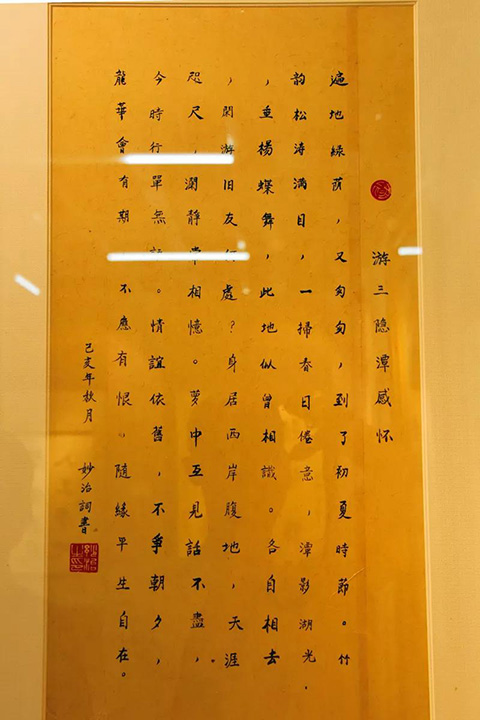 游三隐潭感怀
遍地緑荫，又匆匆，到了初夏時節。竹
韵松涛满目，一掃春日倦意，潭影湖光，
，垂楊蝶舞，此地似曾相識。各自相去
，閑游旧友何處？身居西岸腹地，天涯
咫尺，瀾静常相憶。夢中互見話不盡，
今時行單無。情誼依舊，不爭朝夕，
龍華會有期 不應有恨。隨緣早生自在。
己亥年秋月 妙治詞書。